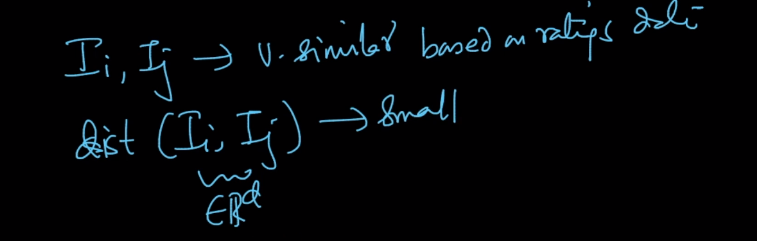 Ii, Ij → v. similar based on ratings data
dist (Ii, Ij) → small
∈ℝᵈ